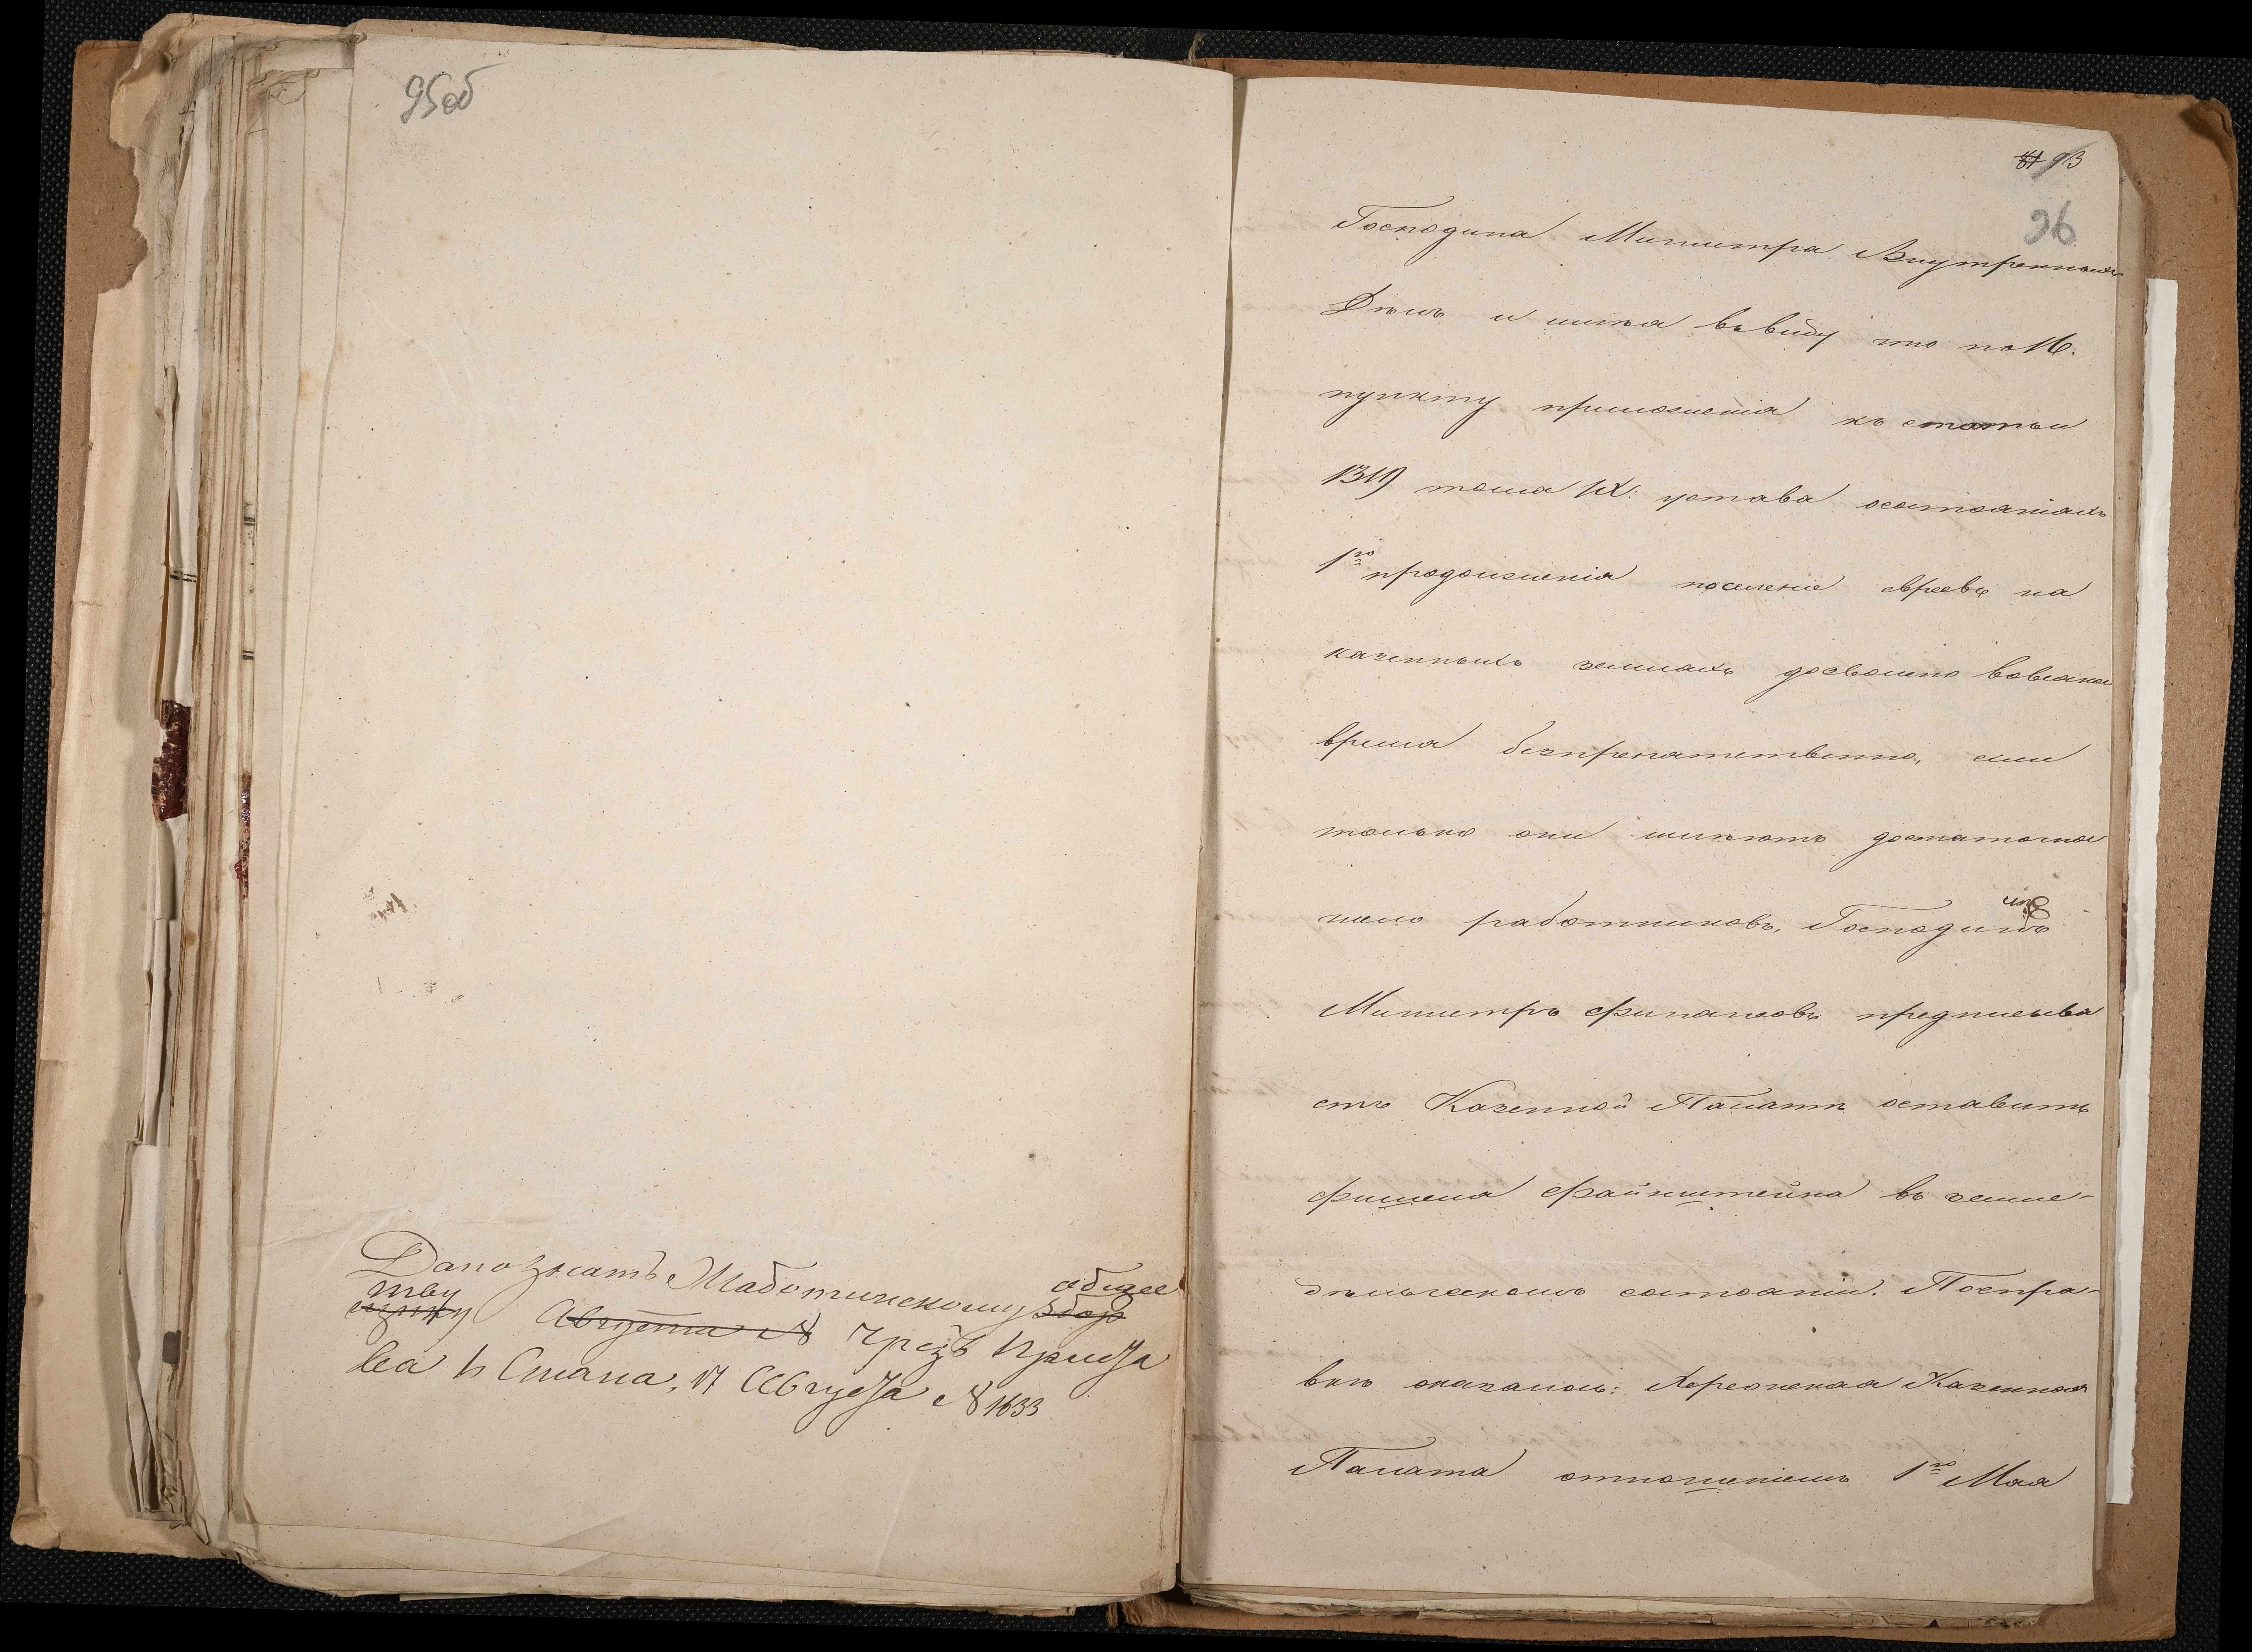 95об
Дано знать Жаботинскому общее
тву чрезъ приста
ва 1 Стана, 17 Августа № 1633
93
96
Господина Министра Внутреннихъ
Дѣлъ и имѣя въ виду что по 16.
пункту приложенія къ статьи
1319 тома IX: устава осостояніяхъ
1го продолженія поселеніе евреевъ на
казенныхъ земляхъ дозволено вовсякое
время безпрепятственно, если
только они имѣютъ достаточное
число работниковъ, Господинъ
Министръ Финансовъ предписыва
етъ Казенной Палатѣ оставить
Фишеля Файнштейна въ земле-
дѣльческомъ состояніи. Поспра-
вкѣ оказалось: Херсонская Казенная
Палата отношеніемъ 1го Мая